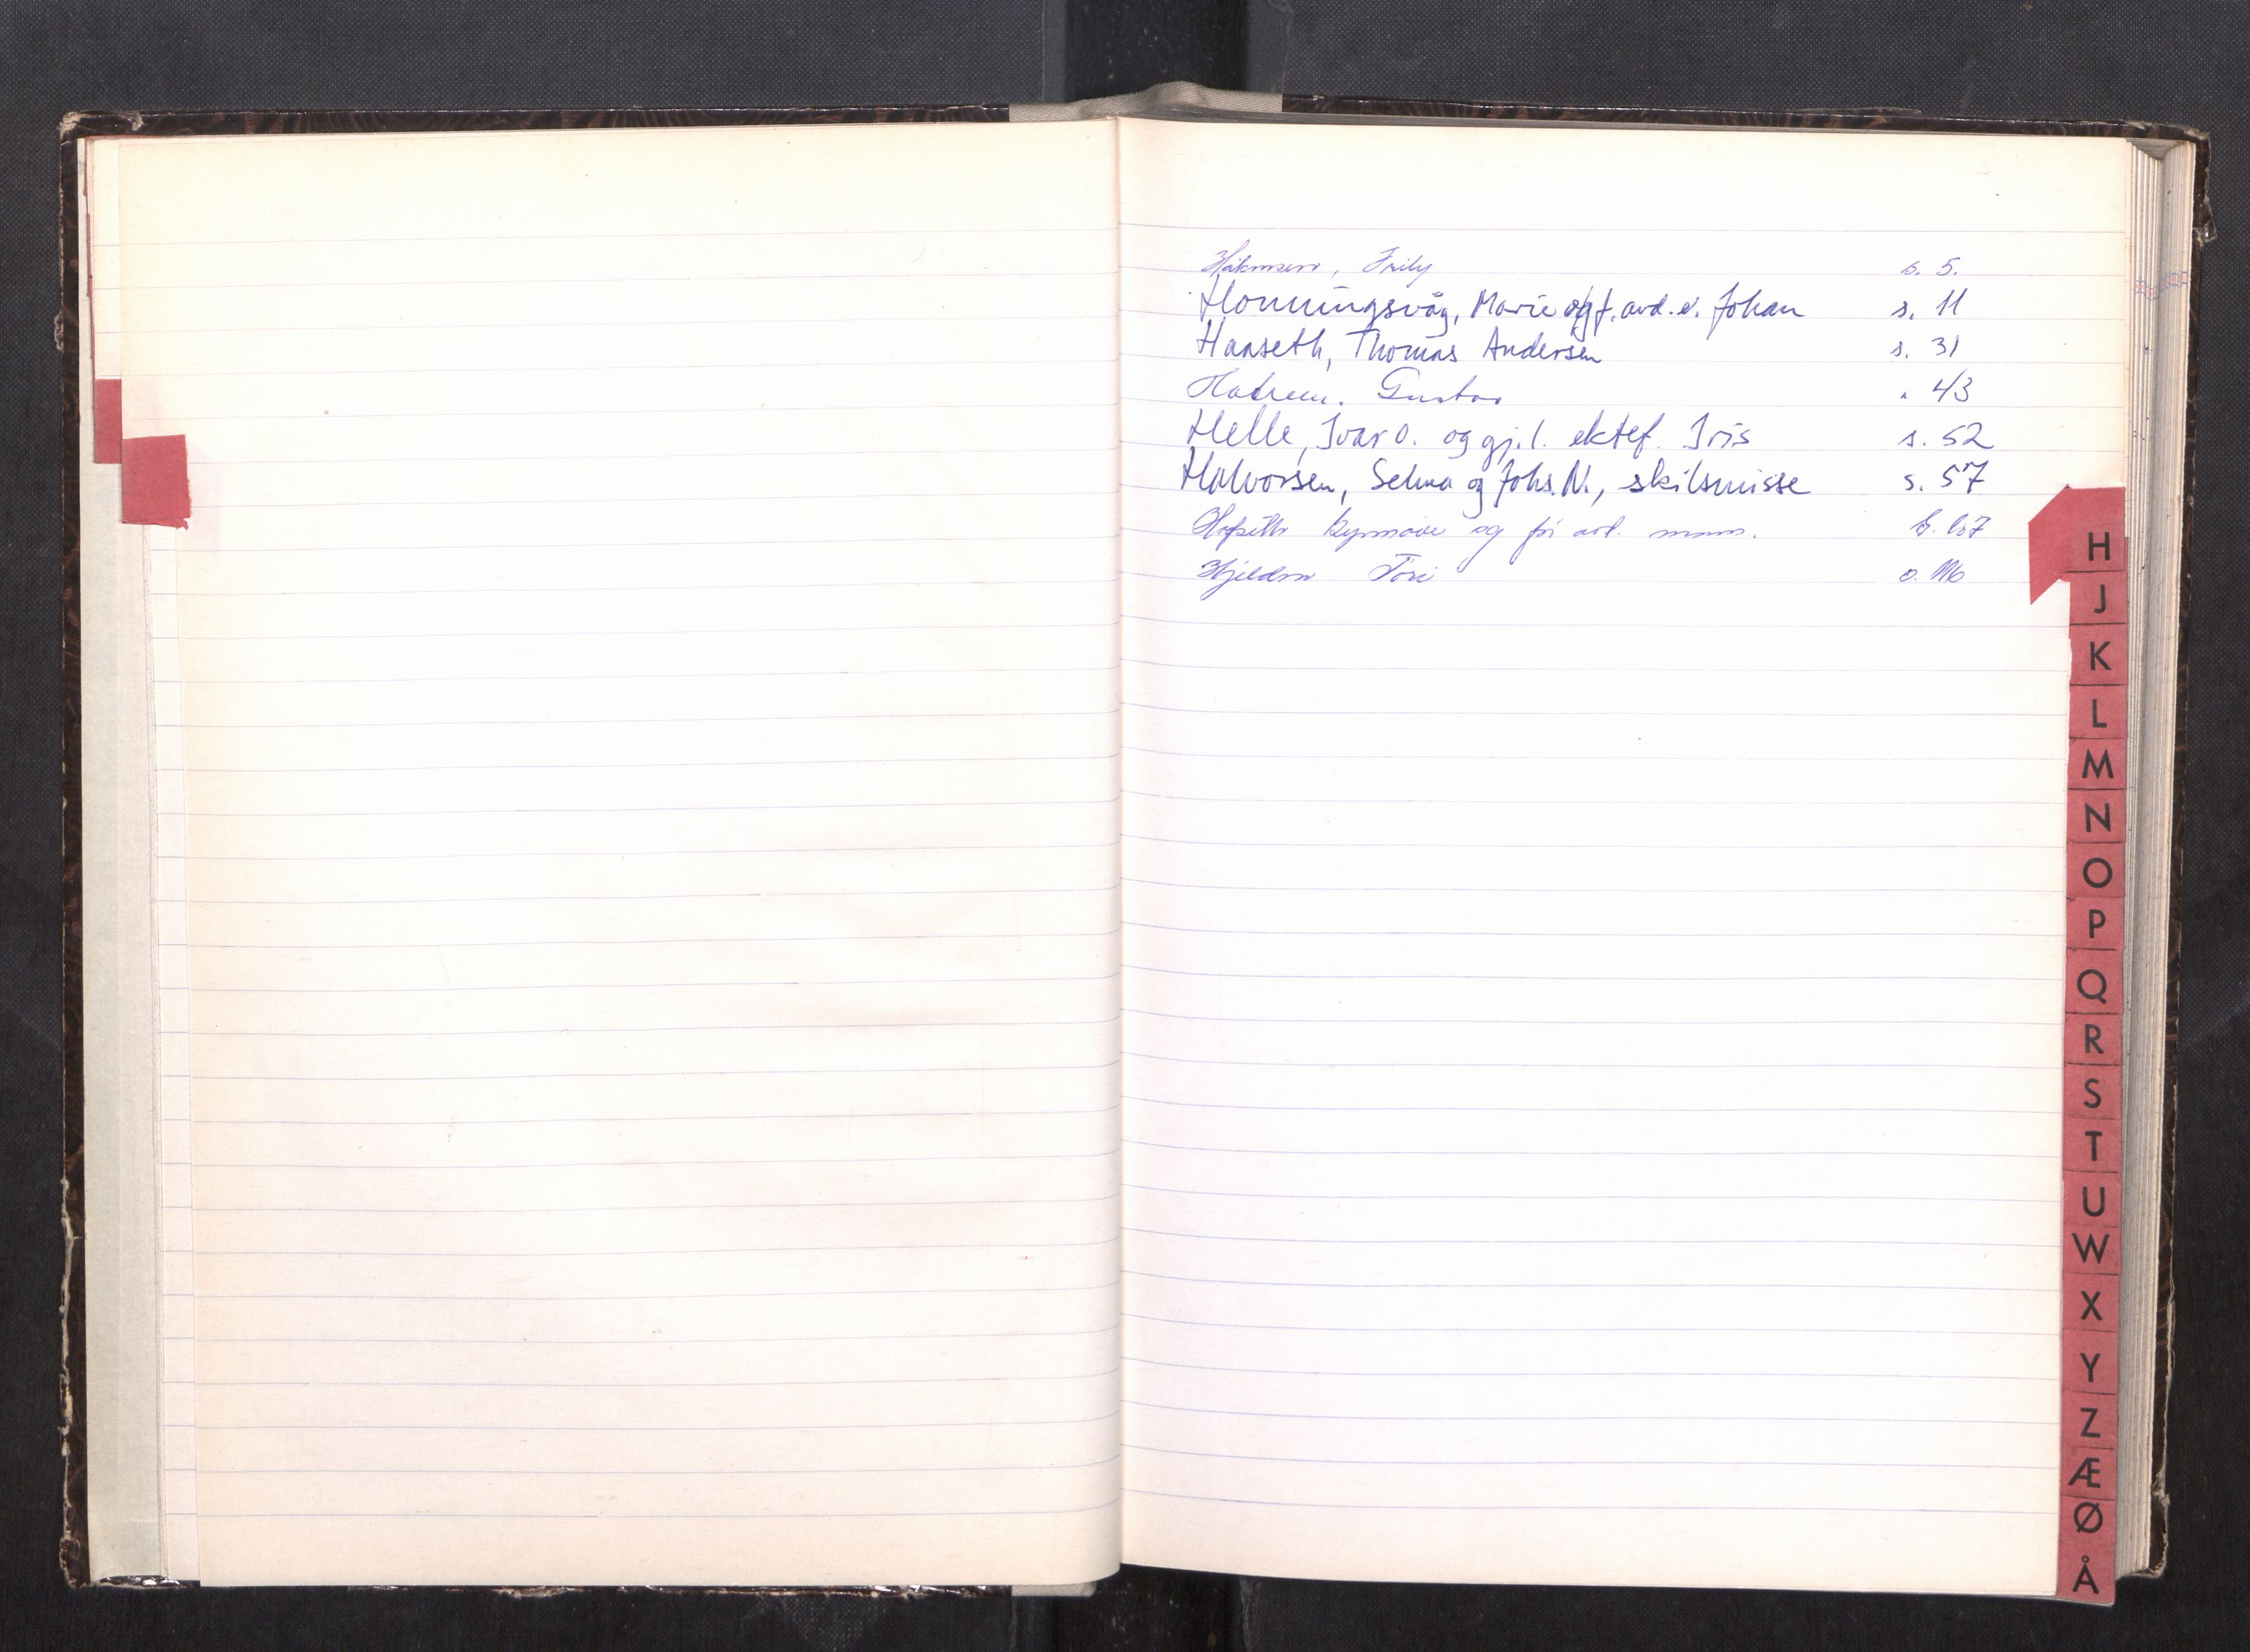 Håkonsen, s. 5.
Honningsvåg, Marie og f. avd. e. Johan s. 11
Haaseth, Thomas Andersen s. 31
Gustav 43
Helle, Ivar O. og gj.l. ektef. Iris s. 52
Halvorsen, Selma og Johs. N., skilsmisse s. 57
Hofseth og for avd. mann.
Hjeldsn
H
J
K
L
M
N
O
P
Q
R
S
T
U
W
X
Y
Z
Æ
Ø
Å